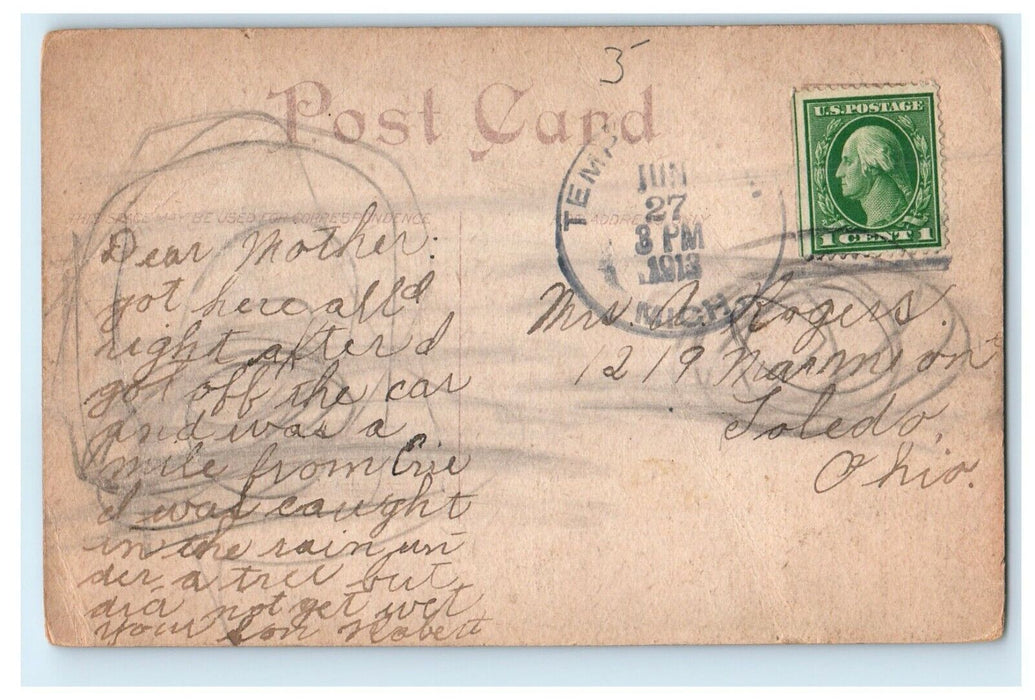 5
Post Card
U.S. POSTAGE
1 CENT 1
TEMP
JUN
27
8 PM
1913
MICH.
THIS SPACE MAY BE USED FOR CORRESPONDENCE
ADDRESS ONLY
Dear Mother:
got here all
right after I
got off the car
and was a
mile from Erie
I was caught
in the rain un
der a tree but
did not get wet
your son Robert
Mrs. A. Rogers.
1219
Toledo,
Ohio.